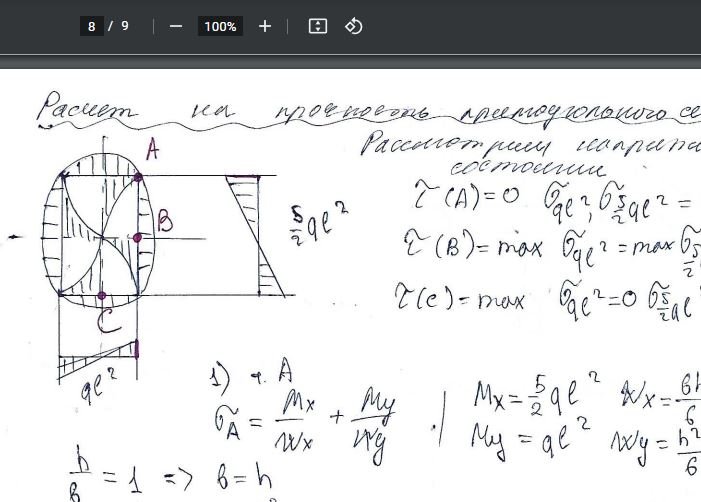 8 / 9 100%
Расчет на прочность прямоугольного се
Рассмотрим напряж
состоянии
A
τ(A)=0 σql², σ5/2ql² =
5/2 ql²
B
τ(B)=max σql² = max σ5/2
τ(C)=max σql²=0 σ5/2ql²
C
ql²
1) т. A
σA = Mx/Wx + My/Wy
Mx = 5/2 ql² Wx = bh/6
My = ql² Wy = h²/6
h/b = 1 => b = h